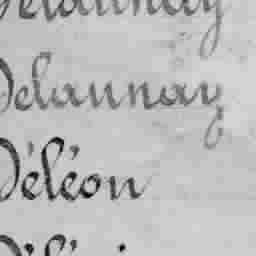 Delaunay
Delaunay
Déléon